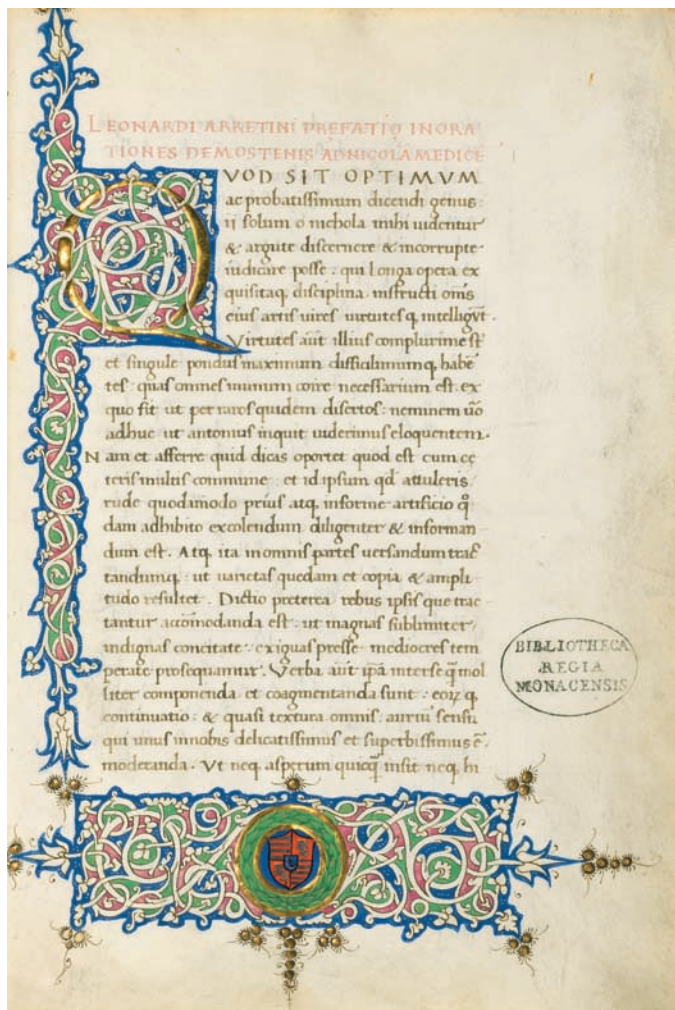 LEONARDI ARRETINI PREFATIO IN ORA
TIONES DEMOSTENIS AD NICOLA MEDICE
QVOD SIT OPTIMVM
ac probatissimum dicendi genus:
ii solum o nichola mihi uidentur
& argute discernere & incorrupte
iudicare posse: qui longa opera ex
quisitaq disciplina instructi oms
eius artis uires uirtutesq intelligūt.
Virtutes aūt illius complurime st̄
et singule pondus maximum difficilimumq habē
tes: quas omnes in unum coire necessarium est. ex
quo fit ut per raros quidem disertos: neminem ūo
adhuc ut antonius inquit uiderimus eloquentem.
Nam et afferre quid dicas oportet quod est cum cę
teris multis commune: et id ipsum qd attuleris
rude quodāmodo prius atq informe artificio q̄
dam adhibito excolendum diligenter & informan
dum est. Atq ita in omnis partes uersandum trac
tandumq: ut uarietas quedam et copia & ampli
tudo resultet. Dictio preterea rebus ipsis que trac
tantur accōmodanda est: ut magnas sublimiter
indignas concitate: exiguas presse mediocres tem
perate prosequamur. Verba aūt ipā inter se q̄ mol
liter componenda et coagmentanda sunt: eoꝝ q
continuatio: & quasi textura omnis: auriū sensu
qui unus in nobis delicatissimus et superbissimus ē.
moderanda. Vt neq asperum quicq̄ insit neq hi
BIBLIOTHECA
REGIA
MONACENSIS